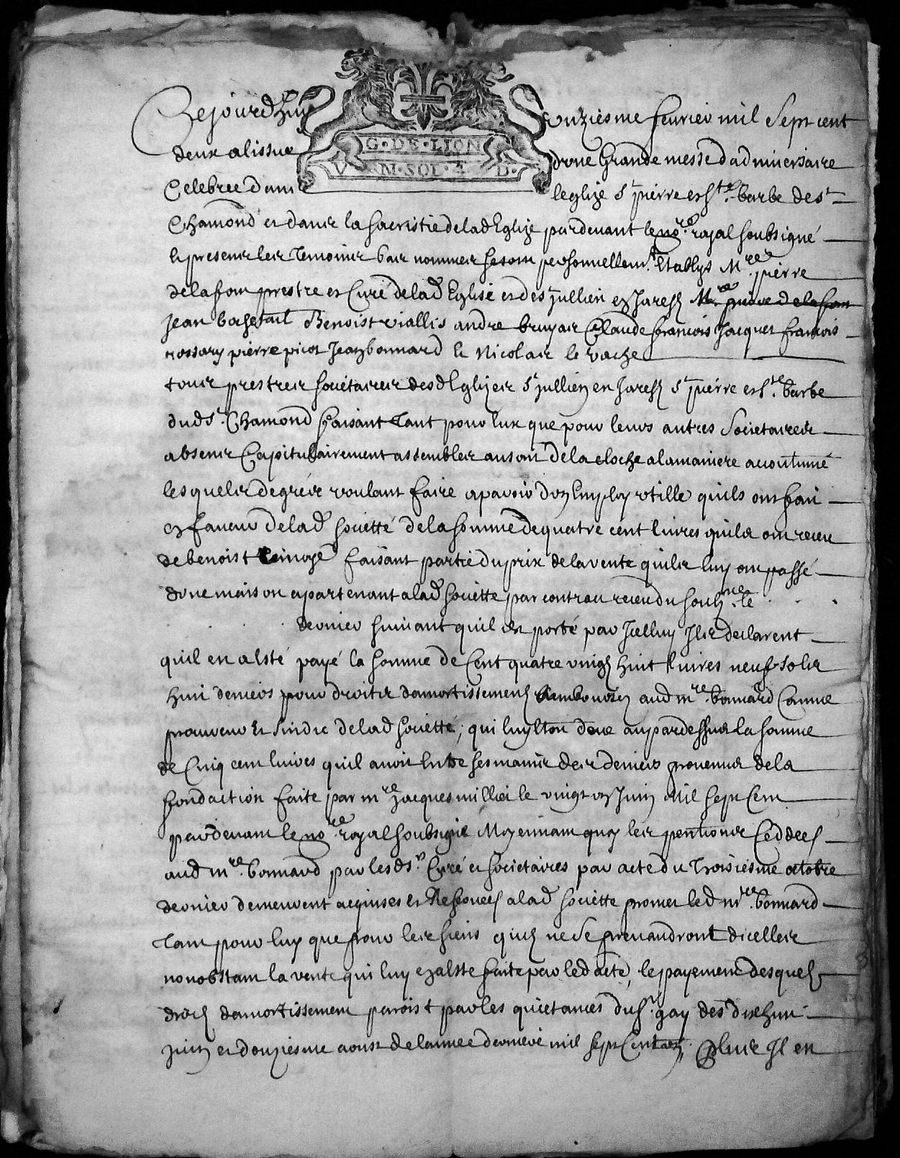 Cejourdhuy onziesme fevrier mil sept cent
G·DE·LION
V N·SOL·4 D·
deux a lissue dune grande messe danniversaire
Celebree dans leglize st pierre et ste barbe de st
Chamond et dans la sacristie de lad Eglize pardevant le nore royal soubsigné
et presents les temoins bas nommes se sont personnellemt Etablys Mre pierre
delafon prestre et Curé de lad Eglise et de st jullien en Jarests Mre pierre delafon
Jean bachefait Benoist viallis andre bruyas Claude francois Jacquet francois
rossary pierre picot Jean bonnard et Nicolas le vache
tous prestres societaires desd Eglizes st jullien en Jarests st pierre et ste barbe
dud st Chamond faisant tant pour eux que pour leurs autres societaires
absents Capitulairement assembles au son de la cloche a la maniere accoutumé
lesquels de gré voulant faire aparoir dun Employ utille quils ont fait
en faveur de lad societté de la somme de quatre cent livres quils ont receu
de benoist faisant partie du prix de la vente quils luy ont passé
dune maison apartenant a lad societte par contrat receu du soubne le
dernier suivant quil est porté par Icelluy Ils declarent
quil en a Esté payé la somme de Cent quatre vingt huit livres neuf sols
huit deniers pour droits damortissement Rembourcé aud mre bonnard Comme
procureur et sindic de lad societté, qui luy Eton deue au pardessus la somme
de Cinq cent livres quil avoit Entre ses mains des deniers provenus de la
fondation faite par mre Jacques millet le vingt un Juin Mil sept Cent
pardevant le nore royal soubsigné Moyennant quoy les pentions Ceddees
aud mre bonnard par lesd srs Curé et societaires par acte du troisiesme octobre
dernier demeurent acquises et a lad societte promet led mre bonnard
tant pour luy que pour les siens quil ne se prevaudront dicelles
nonobstant la vente qui luy en a Esté faite par led acte, le payement desquels
droits damortissement paroist par les quictances du sr gay des dixhuit
juin et douziesme aoust de lannée derniere mil sept Cent un plus Il en